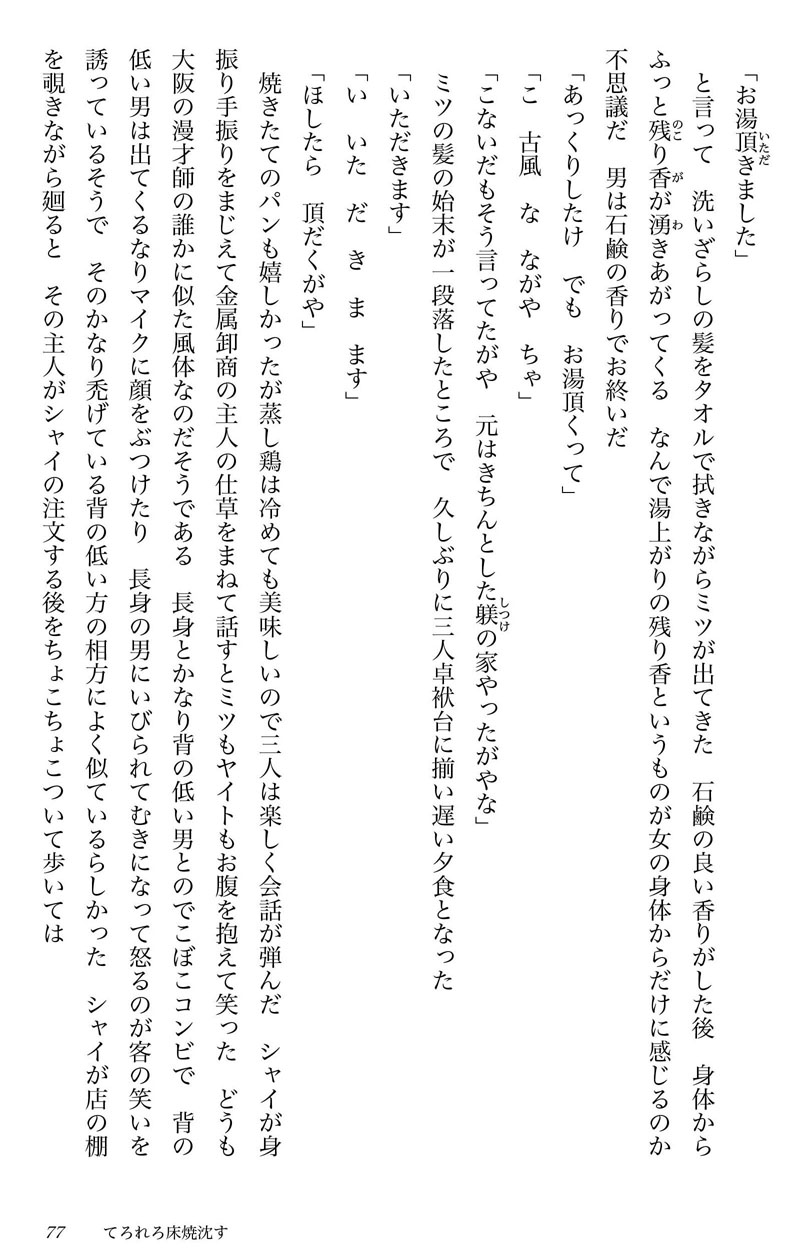 「お湯頂きました」
と言って　洗いざらしの髪をタオルで拭きながらミツが出てきた　石鹸の良い香りがした後　身体から
ふっと残り香が湧きあがってくる　なんで湯上がりの残り香というものが女の身体からだけに感じるのか
不思議だ　男は石鹸の香りでお終いだ
「あっくりしたけ　でも　お湯頂くって」
「こ　古風　な　ながや　ちゃ」
「こないだもそう言ってたがや　元はきちんとした躾の家やったがやな」
ミツの髪の始末が一段落したところで　久しぶりに三人卓袱台に揃い遅い夕食となった
「いただきます」
「い　いた　だ　き　ま　ます」
「ほしたら　頂だくがや」
焼きたてのパンも嬉しかったが蒸し鶏は冷めても美味しいので三人は楽しく会話が弾んだ　シャイが身
振り手振りをまじえて金属卸商の主人の仕草をまねて話すとミツもヤイトもお腹を抱えて笑った　どうも
大阪の漫才師の誰かに似た風体なのだそうである　長身とかなり背の低い男とのでこぼこコンビで　背の
低い男は出てくるなりマイクに顔をぶつけたり　長身の男にいびられてむきになって怒るのが客の笑いを
誘っているそうで　そのかなり禿げている背の低い方の相方によく似ているらしかった　シャイが店の棚
を覗きながら廻ると　その主人がシャイの注文する後をちょこちょこついて歩いては
77　てろれろ床焼沈す